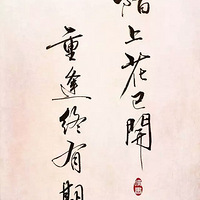 陌上花已開
重逢终有期